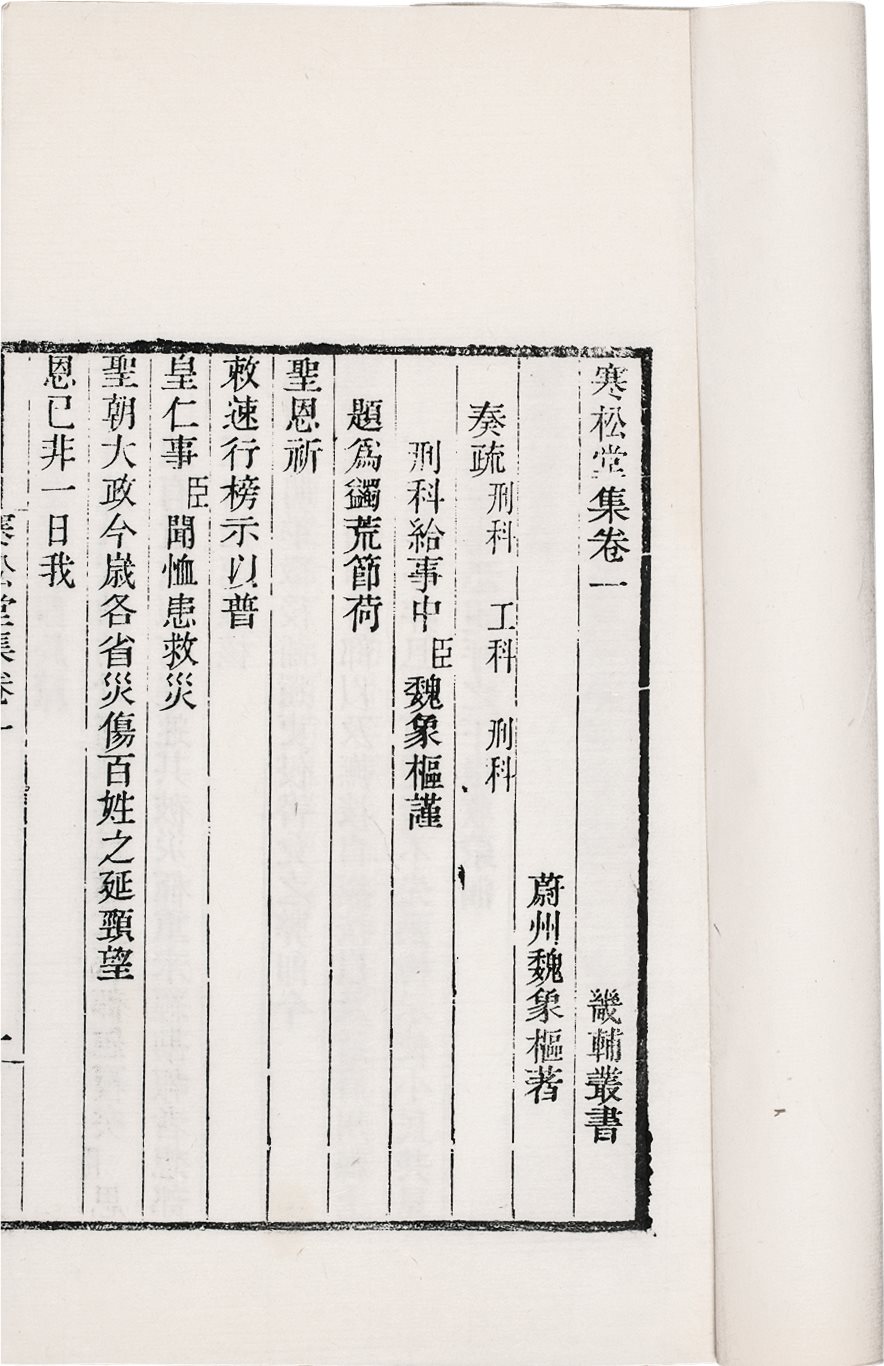 寒松堂集卷一 畿輔叢書
蔚州魏象樞著
奏疏 刑科 工科 刑科
刑科給事中臣魏象樞謹
題爲蠲荒節荷
聖恩祈
敕速行榜示以普
皇仁事臣聞恤患救災
聖朝大政今歲各省災傷百姓之延頸望
恩已非一日我
寒松堂集卷一 一